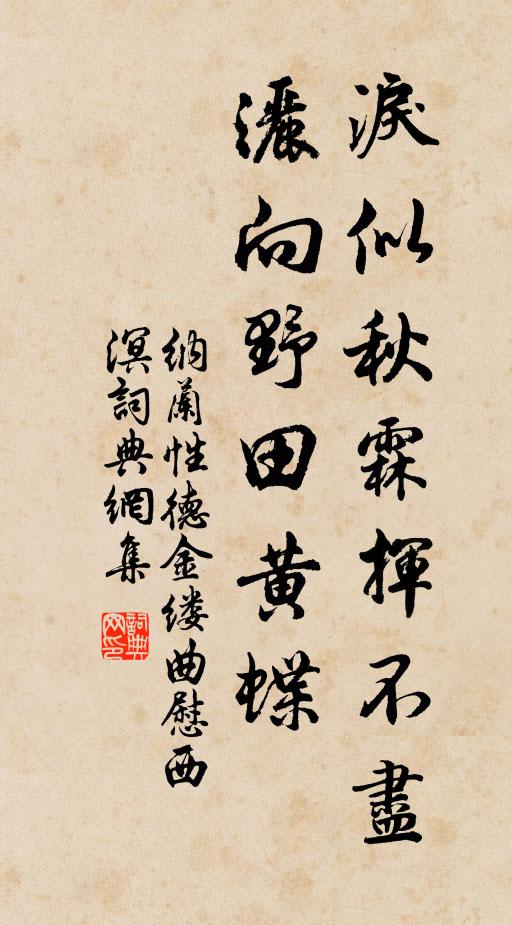 淚似秋霖揮不盡
灑向野田黃蝶
納蘭性德金缕曲慰西
溟詞典網集
詞典网印